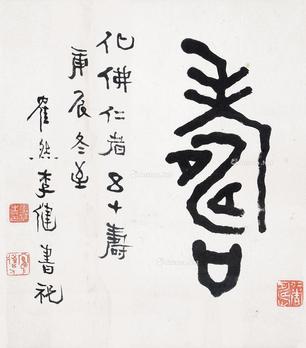 壽
化佛仁者8十壽
庚辰冬至
崔然李健書祝